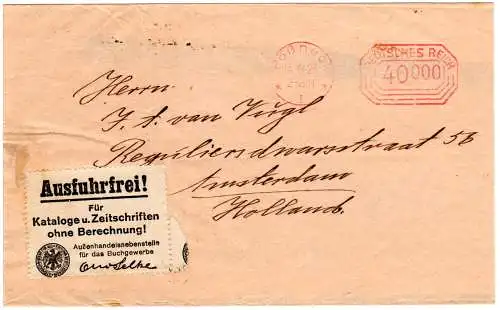 PÖẞNECK
DEUTSCHES REICH
40000
Herrn
J. A. van Vugl
Reguliersdwarsstraat 58
Amsterdam
Holland.
Ausfuhrfrei!
Für
Kataloge u. Zeitschriften
ohne Berechnung!
Außenhandelsnebenstelle
für das Buchgewerbe
Otto Selke